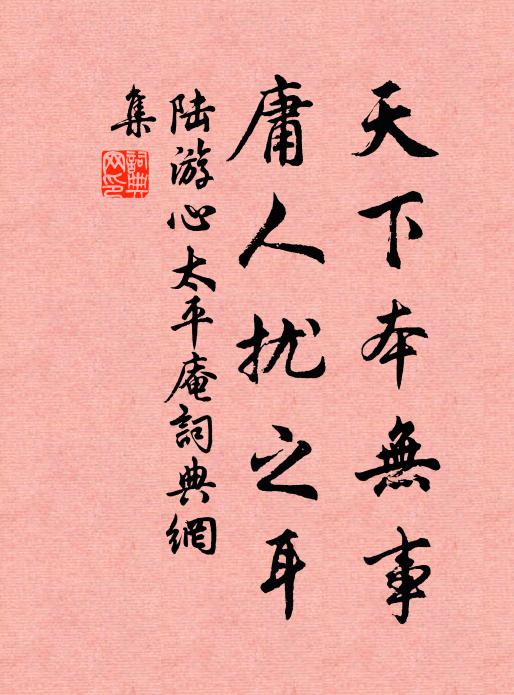 天下本無事
庸人扰之耳
陆游心太平庵詞典網
集
詞典
网印